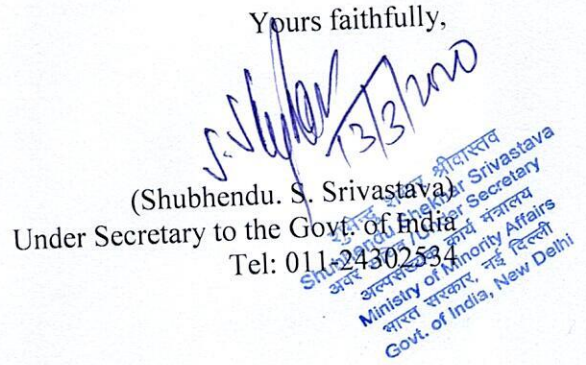 Yours faithfully,
13/3/2020
(Shubhendu. S. Srivastava)
Under Secretary to the Govt. of India
Tel: 011-24302534
श्रीवास्तव
Shubhendu Shekhar Srivastava
अवर सचिव / Under Secretary
अल्पसंख्यक कार्य मंत्रालय
Ministry of Minority Affairs
भारत सरकार, नई दिल्ली
Govt. of India, New Delhi